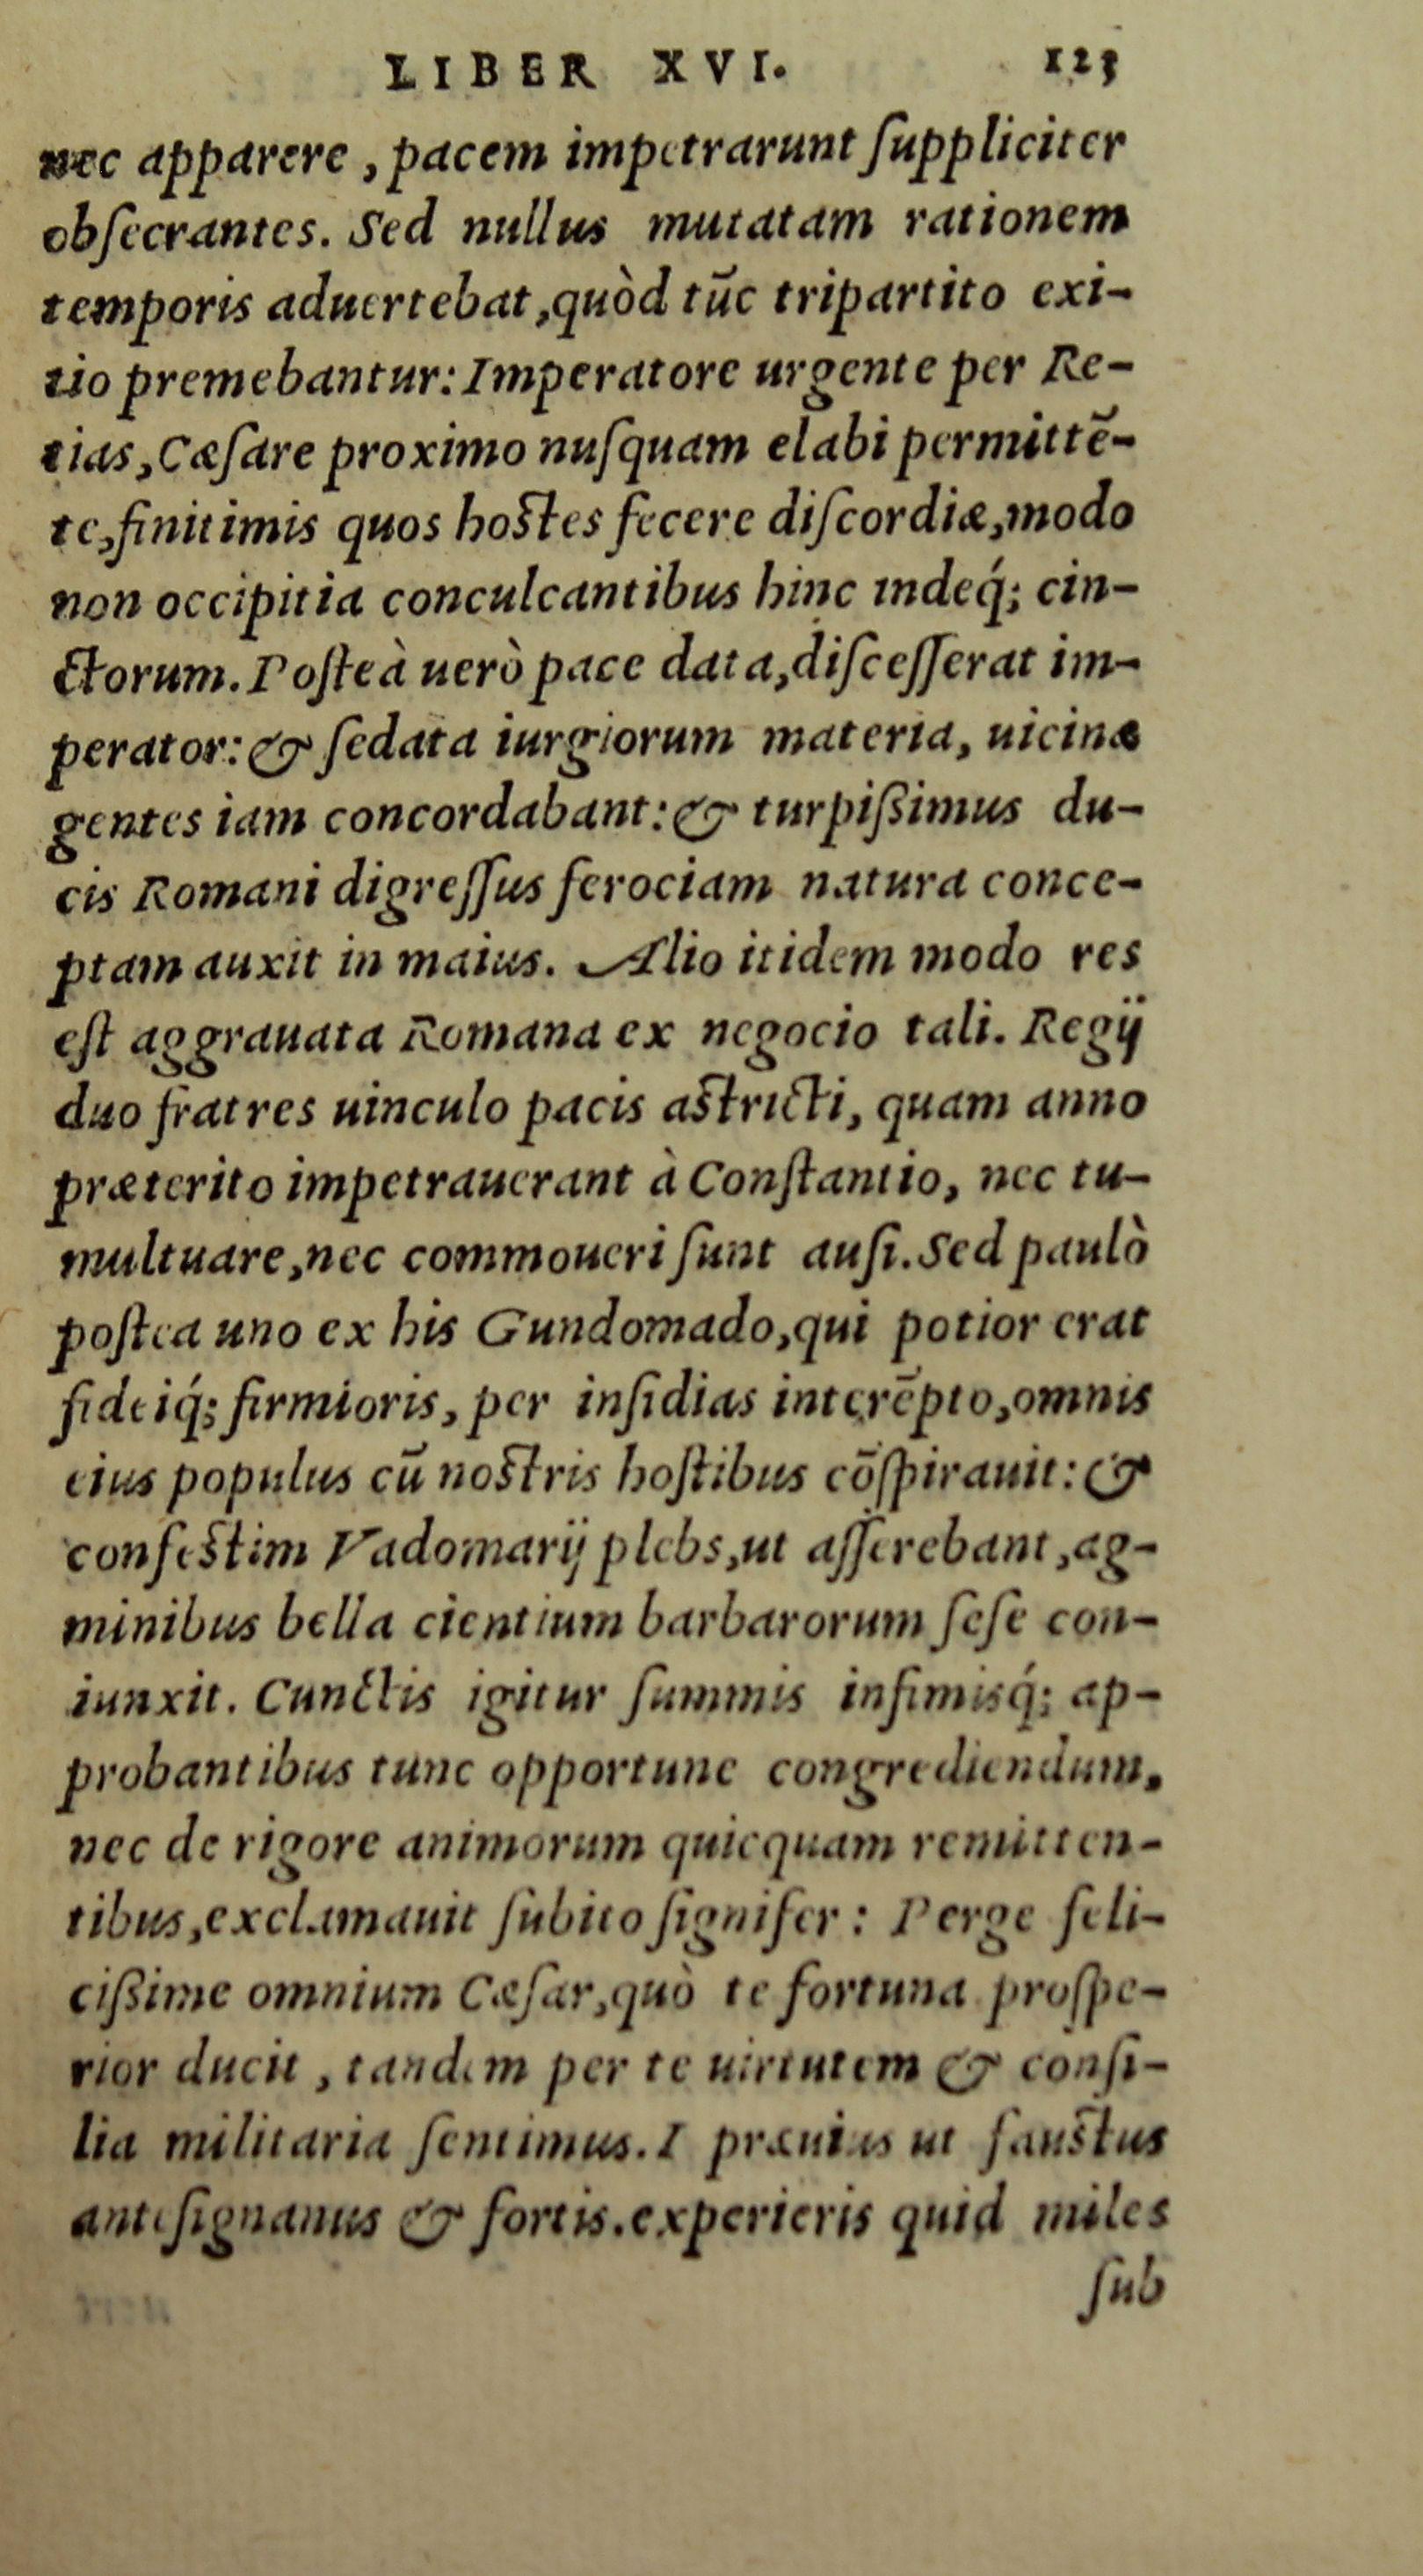 LIBER XVI. 123
nec apparere, pacem impetrarunt ſuppliciter
obſecrantes. Sed nullus mutatam rationem
temporis aduertebat, quòd tūc tripartito exi-
tio premebantur: Imperatore urgente per Re-
tias, Cæſare proximo nuſquam elabi permittē-
te, finitimis quos hoſtes fecere diſcordiæ, modo
non occipitia conculcantibus hinc indeq́; cin-
ctorum. Poſteà uerò pace data, diſceſſerat im-
perator: & ſedata iurgiorum materia, uicinæ
gentes iam concordabant: & turpißimus du-
cis Romani digreſſus ferociam natura conce-
ptam auxit in maius. Alio itidem modo res
eſt aggrauata Romana ex negocio tali. Regij
duo fratres uinculo pacis aſtricti, quam anno
præterito impetrauerant à Conſtantio, nec tu-
multuare, nec commoueri ſunt auſi. Sed paulò
poſtea uno ex his Gundomado, qui potior erat
fideiq́; firmioris, per inſidias interēpto, omnis
eius populus cū noſtris hoſtibus cōſpirauit: &
confeſtim Vadomarij plebs, ut aſſerebant, ag-
minibus bella cientium barbarorum ſeſe con-
iunxit. Cunctis igitur ſummis infimisq́; ap-
probantibus tunc opportune congrediendum,
nec de rigore animorum quicquam remitten-
tibus, exclamauit ſubito ſignifer: Perge feli-
cißime omnium Cæſar, quò te fortuna proſpe-
rior ducit, tandem per te uirtutem & conſi-
lia militaria ſentimus. I præuius ut fauſtus
anteſignanus & fortis. experieris quid miles
ſub